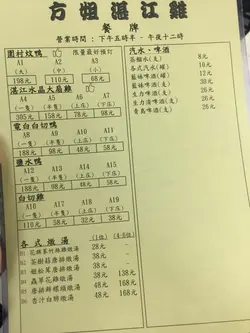 方姐湛江雞
餐牌
營業時間：下午五時半－午夜十二時
圍村炆鴨 限量最好預訂
A1 A2 A3
(大) (中) (小)
198元 110元 68元
湛江水晶大扇雞
A4 A5 A6 A7
(一隻) (半隻) (上庄) (下庄)
305元 158元 78元 98元
電白白切鴨
A8 A9 A10 A11
(一隻) (半隻) (上庄) (下庄)
188元 98元 48元 58元
鹽水鴨
A12 A13 A14 A15
(一隻) (半隻) (上庄) (下庄)
188元 98元 48元 58元
白切雞
A16 A17 A18 A19
(一隻) (半隻) (上庄) (下庄)
110元 58元 32元 38元
各式燉湯 (1位) (4-5位)
28元
B2 茶樹菇唐排燉湯 38元
38元 138元
B4 蟲草花雞燉湯 38元 168元
48元 168元
B6 杏汁白肺燉湯 48元 168元
汽水、啤酒
蒸餾水(支) 8元
各式汽水(罐) 10元
藍妹啤酒(支)
藍妹啤酒(支)
生力啤酒(支)
生力清啤酒(支)
青島啤酒(支)